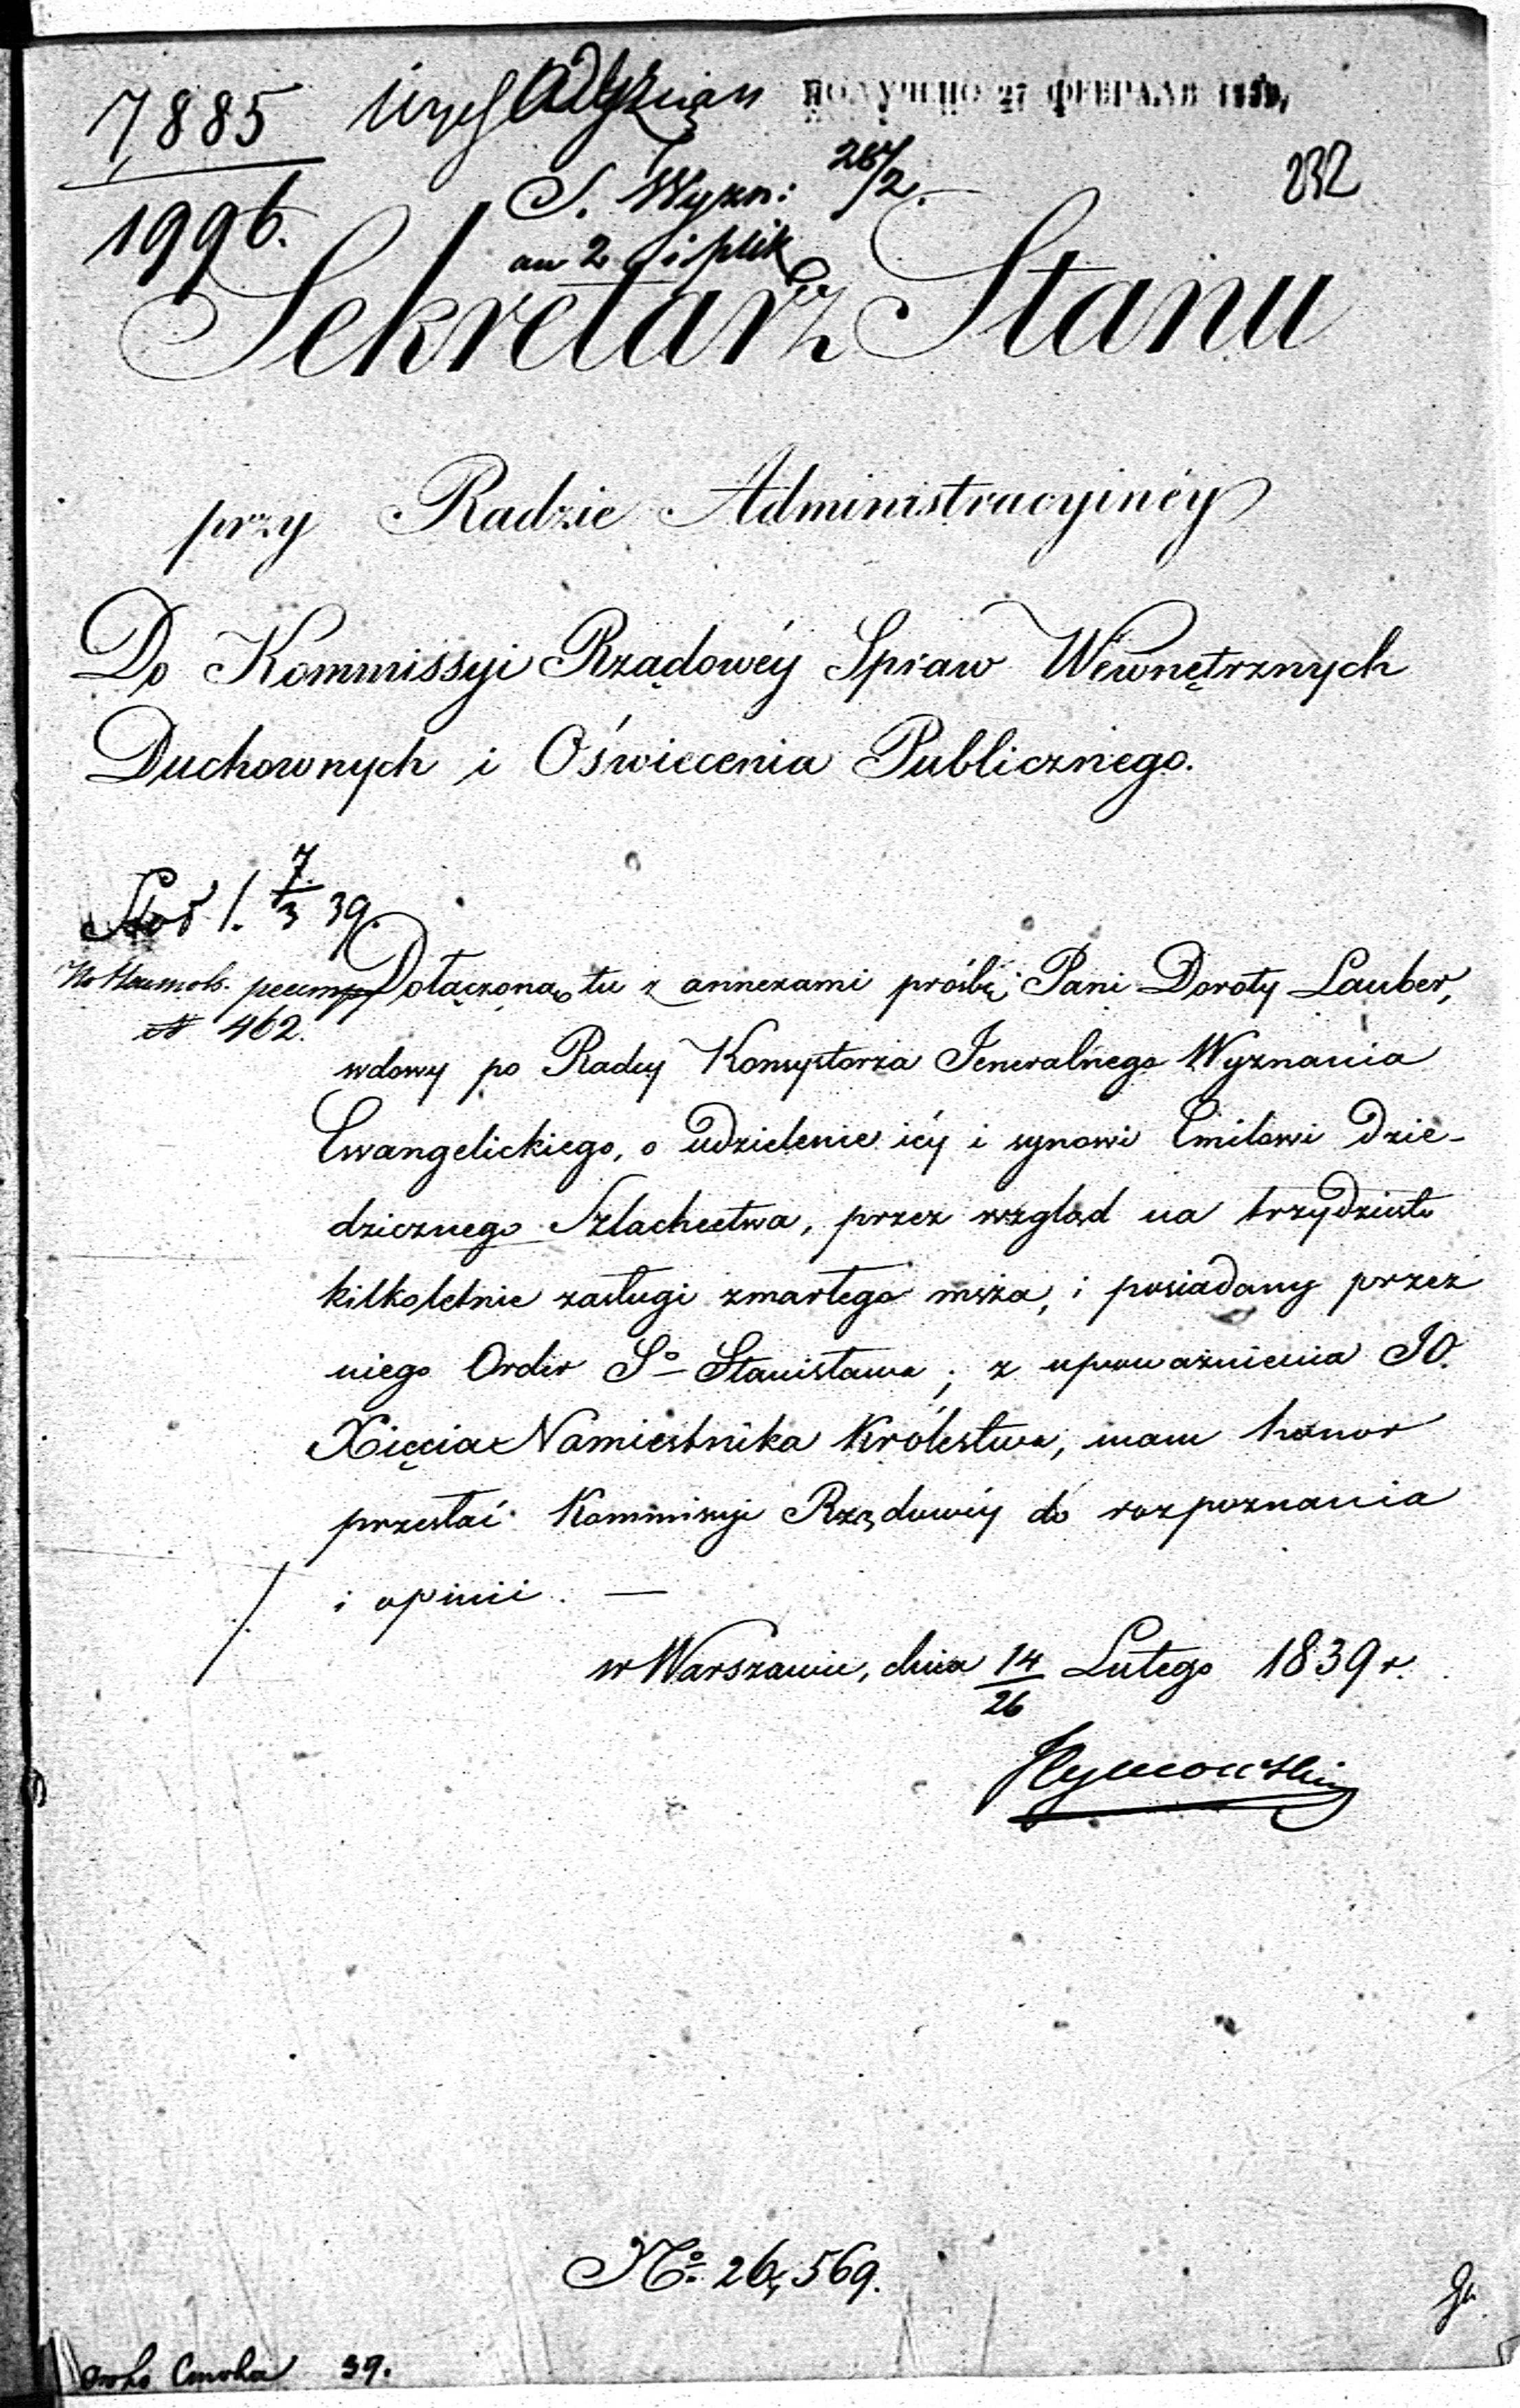 7885
1996.
ПОЛУЧЕНО 27 ФЕВРАЛЯ 1839,
S. Wyzn: 26/2.
232
an 2 i plik
Sekretarz Stanu
przy Radzie Administracyinéy
Do Kommissyi Rządowéy Spraw Wewnętrznych
Duchownych i Oświecenia Publicznego.
7/3 39.
Dołączoną tu z annexami prośbę Pani Doroty Lauber,
№ 462.
wdowy po Radcy Konsystorza Jeneralnego Wyznania
Ewangelickiego, o udzielenie iéy i synowi Emilowi dzie-
dzicznego Szlachectwa, przez wzgląd na trzydziesto
kilkoletnie zasługi zmarłego męża, i posiadany przez
niego Order Sº Stanisława; z upoważnienia JO.
Xięcia Namiestnika Królestwa, mam honor
przesłać Kommissyi Rządowéy do rozpoznania
i opinii. —
w Warszawie, dnia 14/26 Lutego 1839 r.
Nº 26,569.
39.